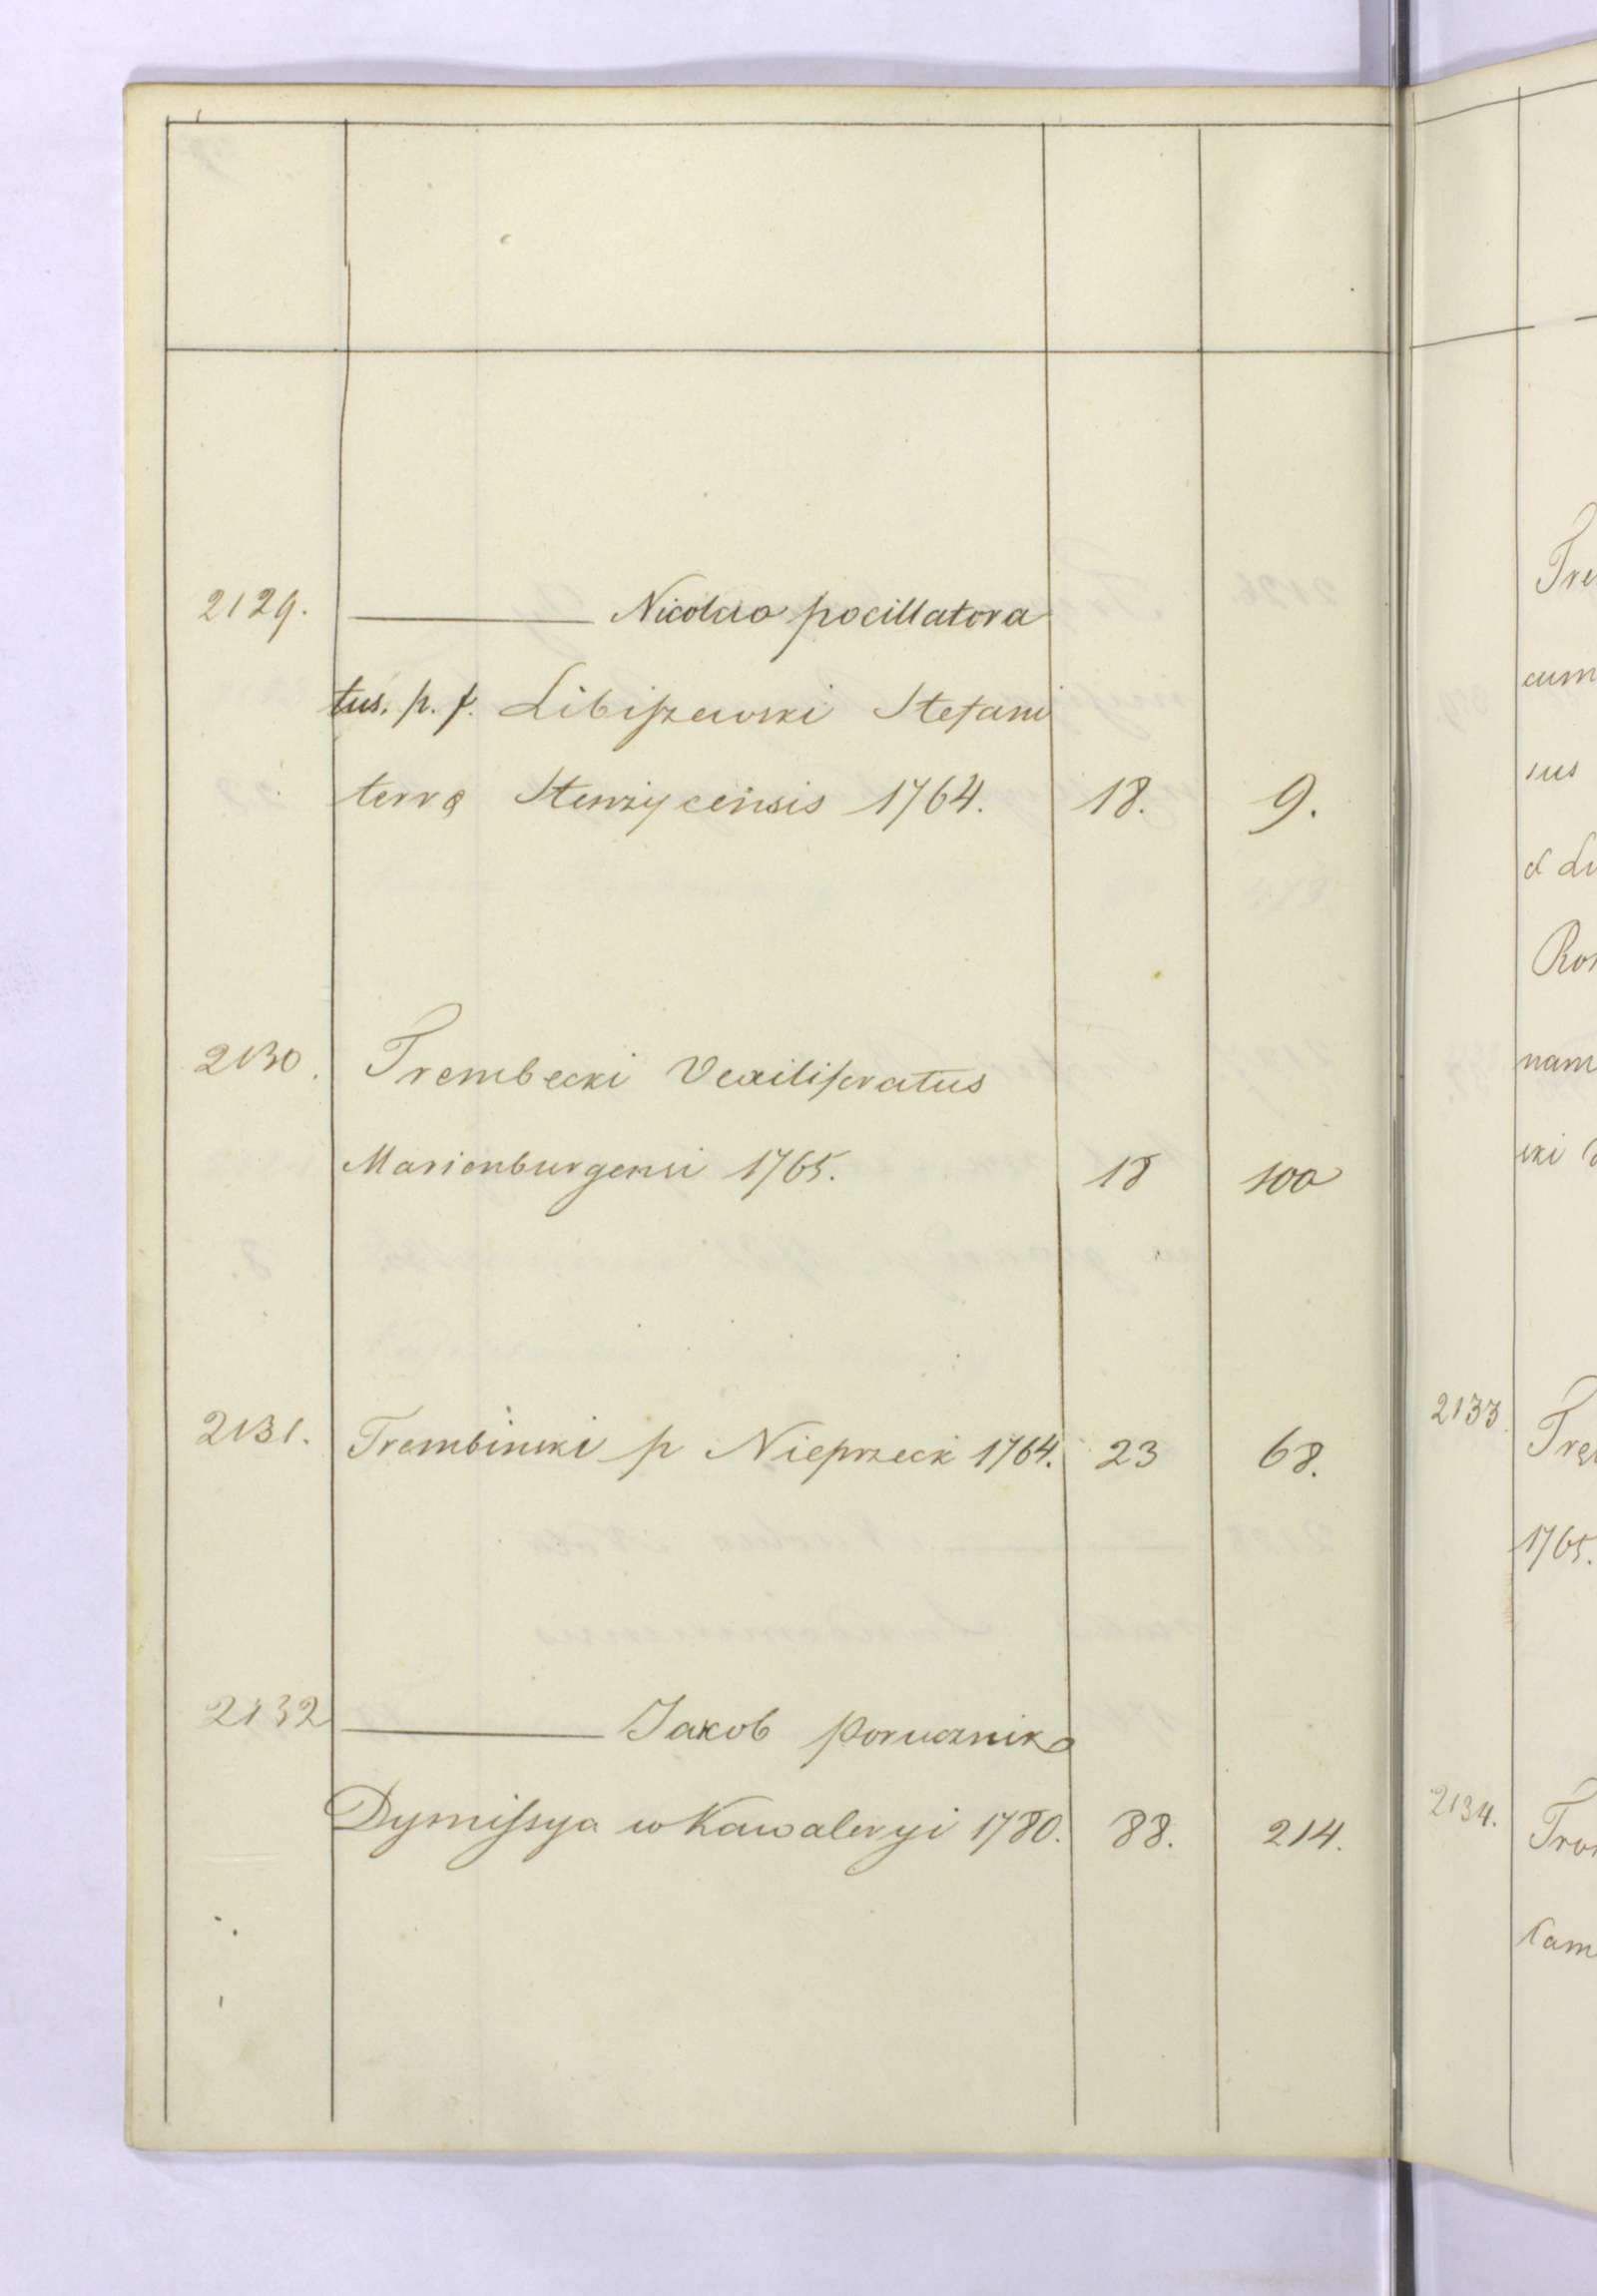 2129. ——— Nicolao pocillatora
tus. p. f. Libiszewski Stefani
terrę Stenzycensis 1764. 18. 9.
2130. Trembecki Vexiliferatus
Marienburgensi 1765. 18 100
2131. Trembinski p Nieprzecki 1764. 23 68.
2132 ——— Jakob porucznik
Dymissya w Kawaleryi 1780. 88. 214.
Tre
cum
sus
d Lu
Ror
nam
2133 Tręb
1765.
2134. Tror
Kam